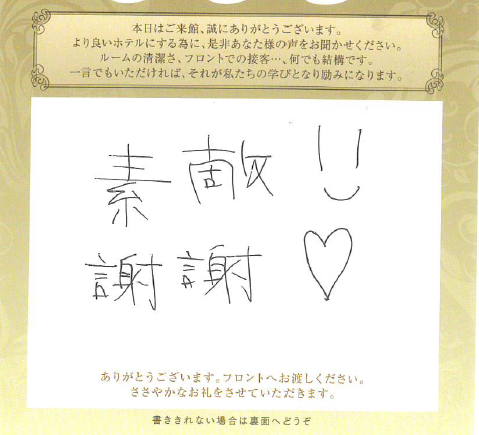 本日はご来館、誠にありがとうございます。
より良いホテルにする為に、是非あなた様の声をお聞かせください。
ルームの清潔さ、フロントでの接客…、何でも結構です。
一言でもいただければ、それが私たちの学びとなり励みになります。
素敵!!
謝謝♡
ありがとうございます。フロントへお渡しください。
ささやかなお礼をさせていただきます。
書ききれない場合は裏面へどうぞ